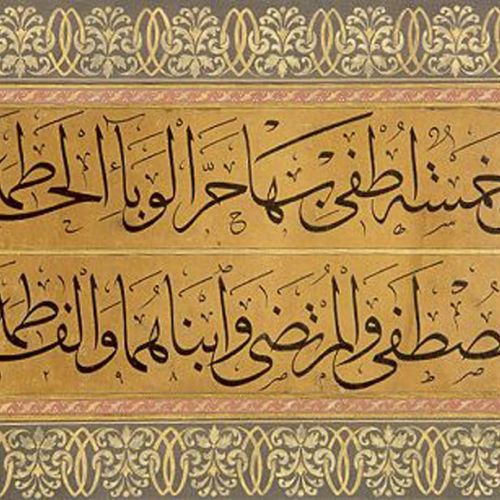 خمسة اطفي بها حرَّ الوبآء الحاطم
صطفى والمرتضى وابناهما والفاطم